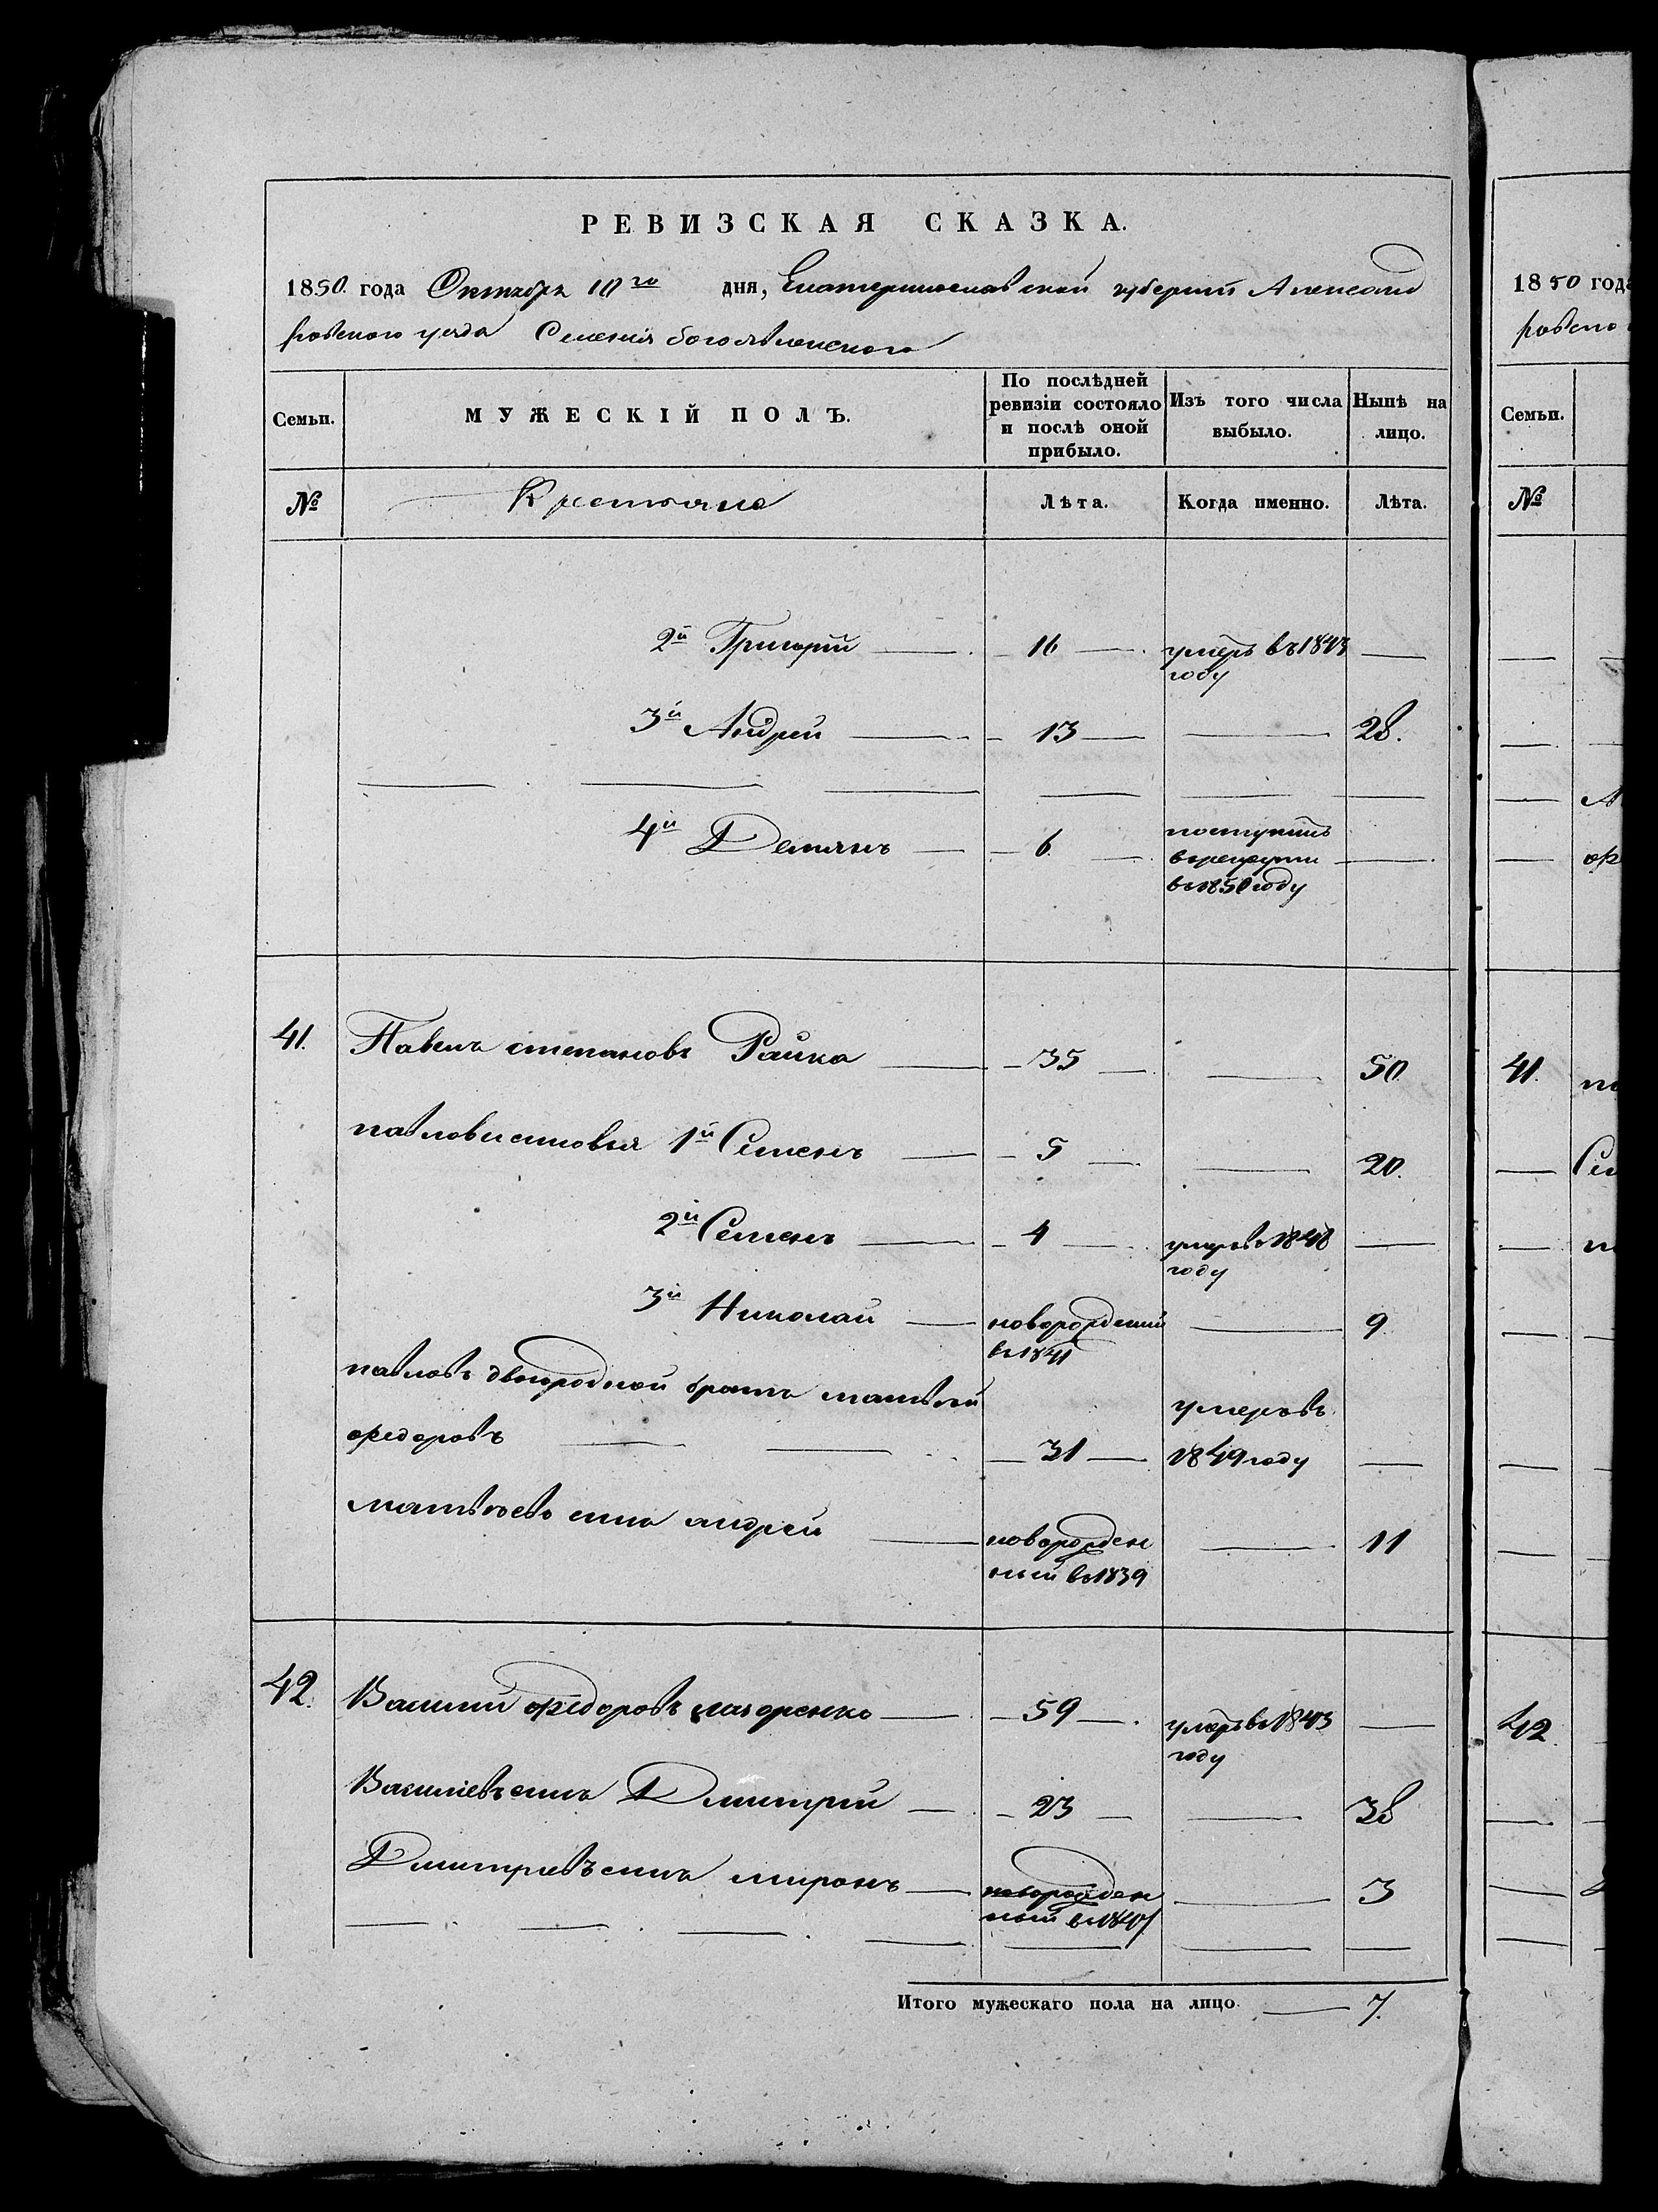 РЕВИЗСКАЯ СКАЗКА.
1850. года Октября 10го дня, Екатеринославской губернии Александ
ровского уезда Селения богоявленского
Семьи. МУЖЕСКІЙ ПОЛЪ. По послѣдней ревизіи состояло и послѣ оной прибыло. Изъ того числа выбыло. Нынѣ на лицо.
№ Крестьяне Лѣта. Когда именно. Лѣта.
2й Григорій 16 умеръ въ 1843
году
3й Андрей 13 28.
4й Демьянъ 6 поступилъ
в рекруты
въ 1850 году
41. Павелъ степановъ Райко 35 50
павловы сыновья 1й Семенъ 5 20.
2й Семенъ 4 умеръ в 1848
году
3й Николай новорожденый 9
въ 1841
павловъ двоюродной братъ матвѣй
федоровъ 31 умеръ въ
1849 году
матвѣевъ сынъ андрей новорожден 11
ный въ 1839
42. Василий федоровъ 59 умеръ въ 1843
году
Василіевъ сынъ Дмитрий 23 38
Дмитриевъ сынъ миронъ новорожден 3
ный въ
Итого мужескаго пола на лицо 7.
1850 года
ровско
Семьи.
№
41.
42